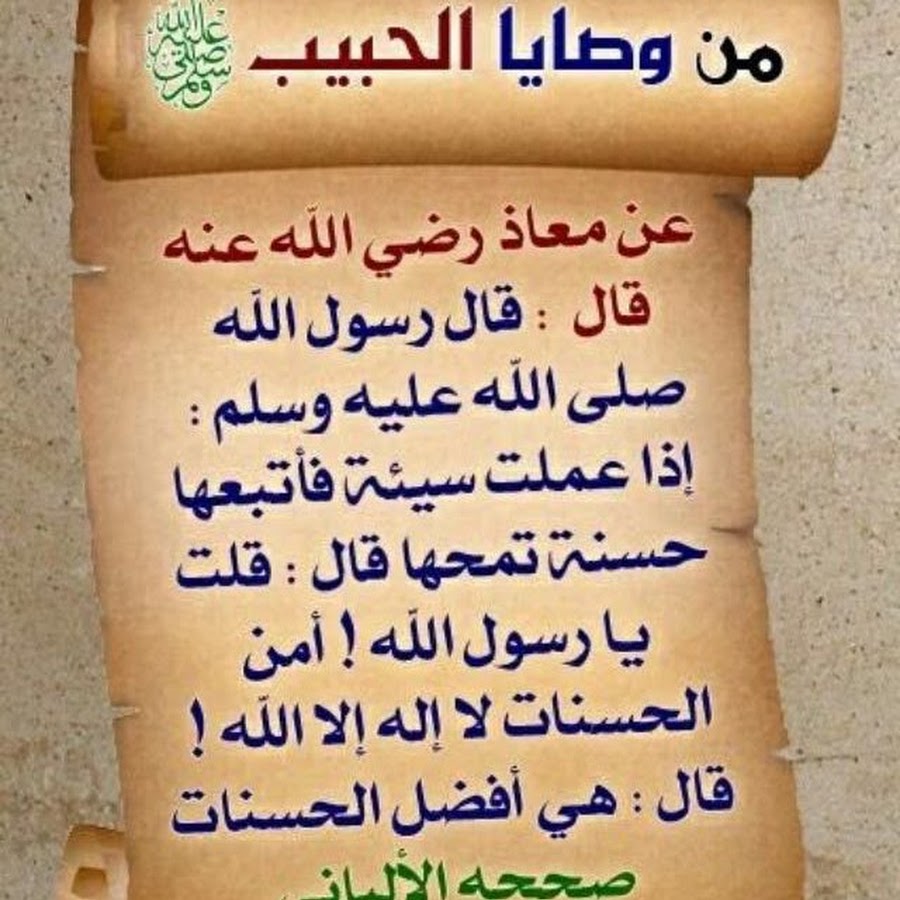 من وصايا الحبيب ﷺ
عن معاذ رضي الله عنه
قال : قال رسول الله
صلى الله عليه وسلم :
إذا عملت سيئة فأتبعها
حسنة تمحها قال : قلت
يا رسول الله ! أمن
الحسنات لا إله إلا الله !
قال : هي أفضل الحسنات
صححه الألباني